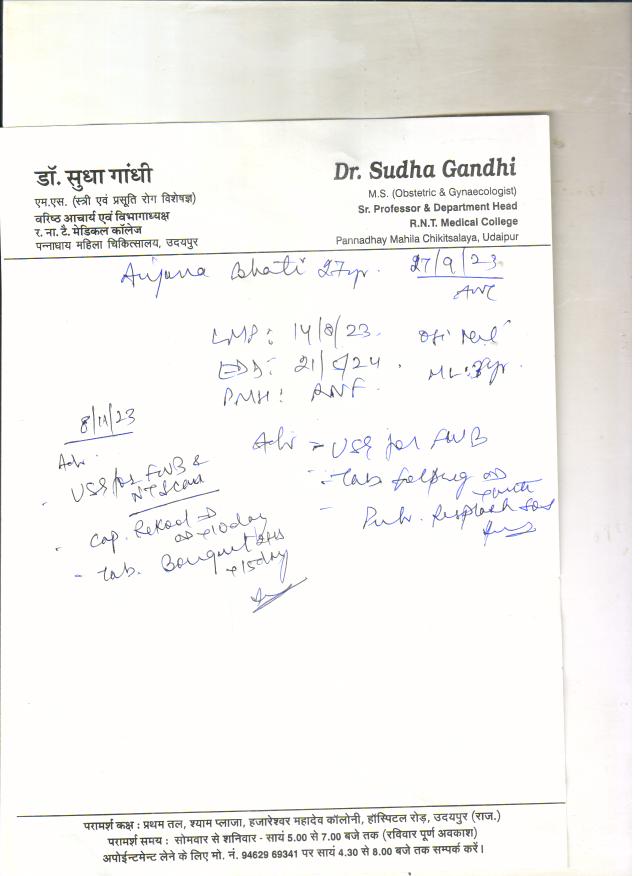 डॉ. सुधा गांधी
एम.एस. (स्त्री एवं प्रसूति रोग विशेषज्ञ)
वरिष्ठ आचार्य एवं विभागाध्यक्ष
र. ना. टै. मेडिकल कॉलेज
पन्नाधाय महिला चिकित्सालय, उदयपुर
Dr. Sudha Gandhi
M.S. (Obstetric & Gynaecologist)
Sr. Professor & Department Head
R.N.T. Medical College
Pannadhay Mahila Chikitsalaya, Udaipur
Anjana Bhati 27yr. 27/9/23
ANC
LMP: 14/8/23.
EDD: 21/5/24.
ML: 3yr.
PMH:
Adv - USG for FWB
- Tab
8/11/23
Adv.
USG for FWB &
NT Scan
- Cap.
OD x 10day
- Tab.
x 15day
परामर्श कक्ष : प्रथम तल, श्याम प्लाजा, हजारेश्वर महादेव कॉलोनी, हॉस्पिटल रोड़, उदयपुर (राज.)
परामर्श समय : सोमवार से शनिवार - सायं 5.00 से 7.00 बजे तक (रविवार पूर्ण अवकाश)
अपोईन्टमेन्ट लेने के लिए मो. नं. 94629 69341 पर सायं 4.30 से 8.00 बजे तक सम्पर्क करें।